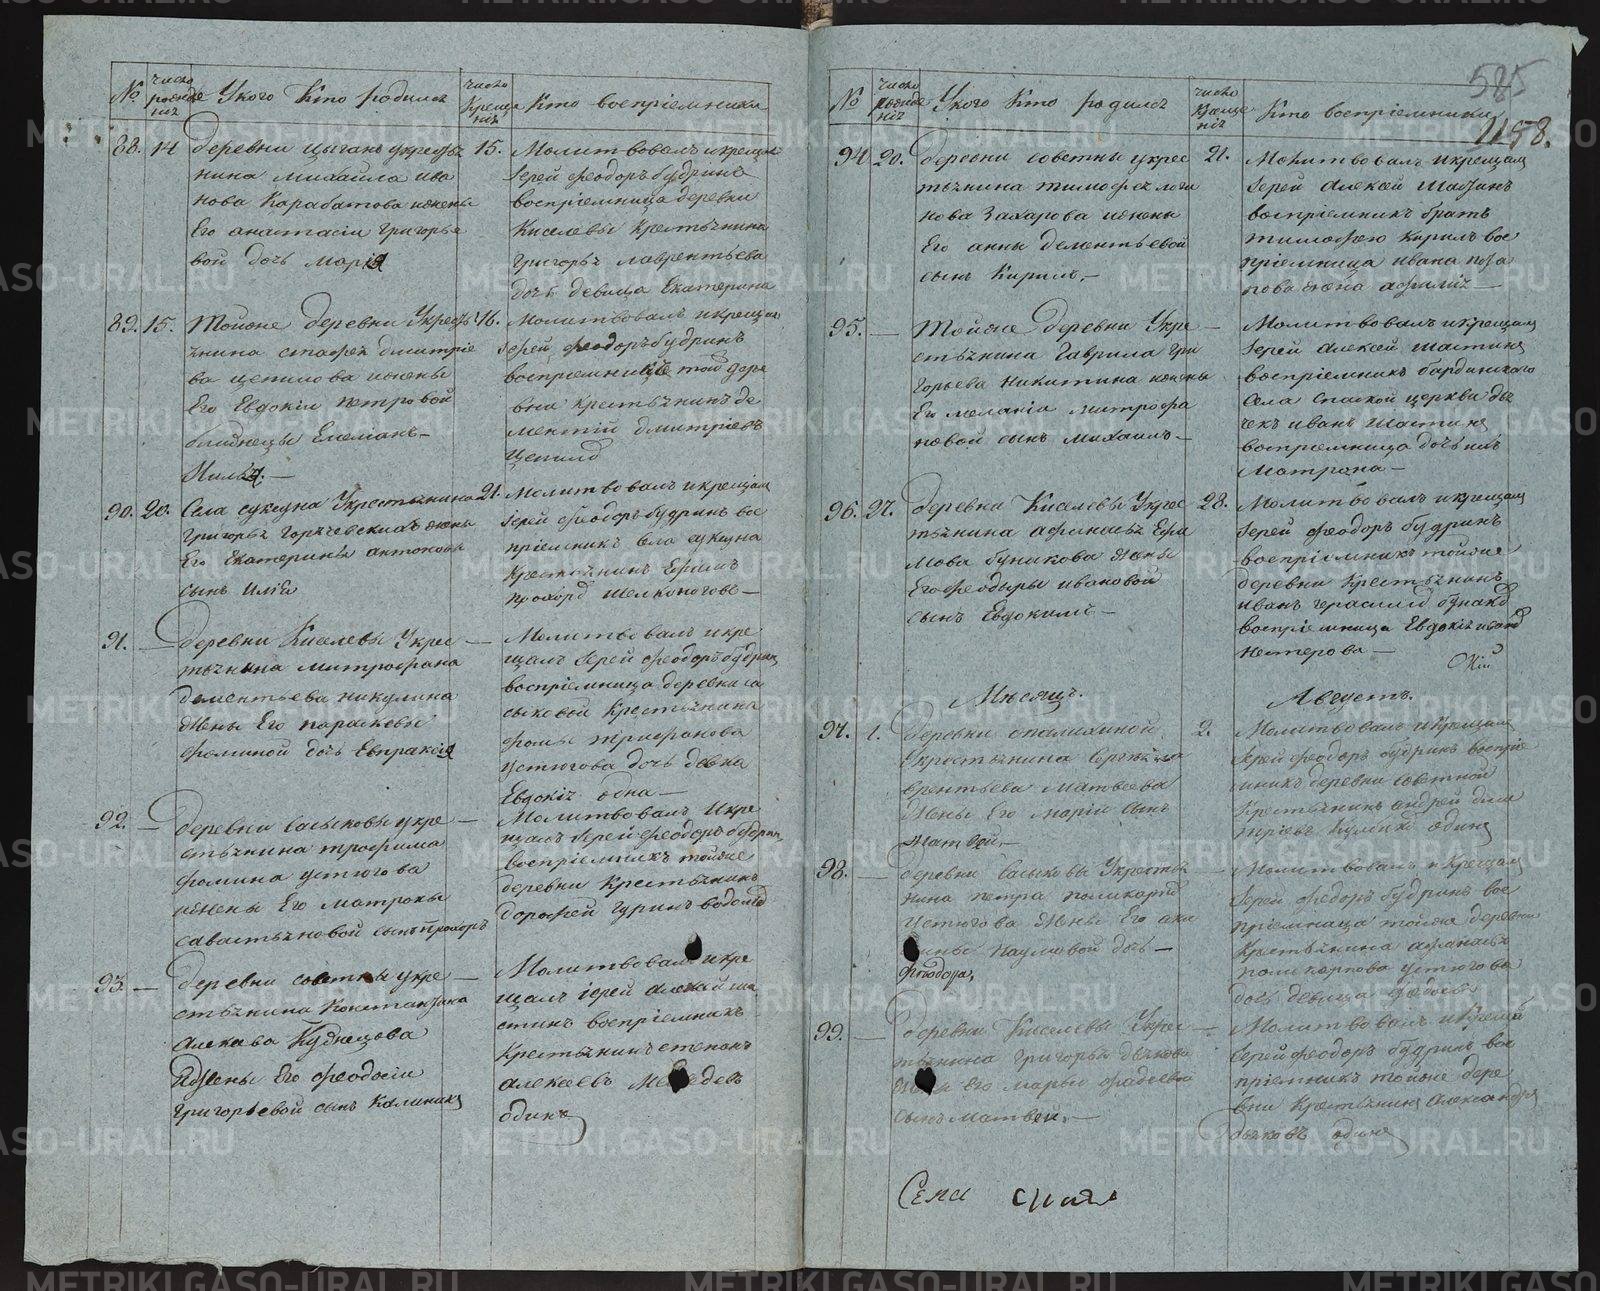 №
число рожде нія
У кого кто родился
число креще нія
Кто воспріемники
88. 14
деревни цыганъ укресть
15.
нина михайла ива
нова Карабатова ижены
Его анастасіи григорье
вой дочь Марія
Молитвовалъ икрещал
Іерей феодоръ будринъ
воспріемница деревни
Киселевы Крестьянина
григорья лаврентьева
дочь девица Екатерина
89. 15.
Тойоже деревни Укресть
16.
янина дмитріе
ва ижены
Его Евдокіи петровой
близнецы Емеліанъ
Илья.
Молитвовалъ икрещал
Іерей феодоръ будринъ
той дере
вни крестьянинъ де
ментій дмитріевъ
90. 20.
Села суксуна Укрестьянина
21.
григорья жены
Его Екатерины антоновой
сынъ Илія
Молитвовалъ икрещал
Іерей феодоръ будринъ вос
пріемникъ села суксуна
Крестьянинъ Ефимъ
91. —
деревни Киселевы Укрес
—
тьянина митрофана
дементьева никулина
жены Его параскевы
фоминой дочь Евпраксія
Молитвовалъ икре
щалъ Іерей феодоръ будрин
воспріемница деревни са
сыковой Крестьянина
фомы трифанова
устюгова дочь девка
Евдокія одна —
92. —
деревни сасыковы укре
—
стьянина трофима
фомина устюгова
ижены Его матроны
савастьяновой сынъ прохоръ
Молитвовалъ Икре
щалъ Іерей феодоръ будрин
воспріемникъ тойоже
деревни Крестьянинъ
дорофей гуринъ
93. —
деревни советны укре
—
стьянина Константина
Кузнецова
Ижены Его феодосіи
григорьевой сынъ Калиникъ
Молитвовалъ икре
щалъ іерей алексей ша
стинъ воспріемникъ
Крестьянинъ степанъ
алексеевъ Медведевъ
одинъ
585
1158.
№
число рожде нія
У кого кто родился
число Креще нія
Кто воспріемники
94 20.
деревни советны укрес
21.
тьянина тимофея логи
нова Захарова ижены
Его анны дементьевой
сынъ Кирилъ. —
Молитвовалъ икрещал
Іерей алексей шастинъ
воспріемникъ братъ
тимофею Кирилъ вос
пріемница ивана
95. —
Тойже деревни Укре
—
стьянина Гаврила гри
горьева Никитина ижены
Его меланіи митрофа
новой сынъ михаилъ —
Молитвовалъ икрещал
Іерей алексей шастинъ
воспріемникъ бардинскаго
села спаской церкви дья
чекъ иванъ шастинъ
воспріемница дочь
Матрона —
96. 27.
деревни Киселевы Укрес
28.
тьянина афанасья Ефи
мова бунакова жены
Его феодоры ивановой
сынъ Евдокимъ —
Молитвовалъ икрещал
Іерей феодоръ будринъ
воспріемникъ тойоже
деревни Крестьянинъ
иванъ герасимовъ бунаковъ
воспріемница Евдокія
нестерова —
Мѣсяцъ.
Августъ.
97. 1.
деревни опалихиной
2.
Укрестьянина Сергѣя ла
врентьева матвеева
жены Его маріи сынъ
матвей. —
Молитвовалъ и Крещал
Іерей феодоръ будринъ воспріе
мникъ деревни советной
Крестьянинъ андрей дми
тріевъ одинъ
98. —
деревни сасыковы Укрестья
—
нина петра поликарпова
устюгова жены Его аки
лины наумовой дочь —
феодора,
Молитвовалъ и Крещал
Іерей феодоръ будринъ вос
пріемница тойоже деревни
Крестьянина афанасья
поликарпова устюгова
дочь девица
99. —
деревни Киселевы Укрес
—
тьянина григорья дьякова
жены Его марфы фадеевой
сынъ матвей. —
Молитвовалъ и Крещал
Іерей феодоръ будринъ вос
пріемникъ тойоже дере
вни Крестьянинъ александръ
дьяковъ одинъ
METRIKI.GASO-URAL.RU